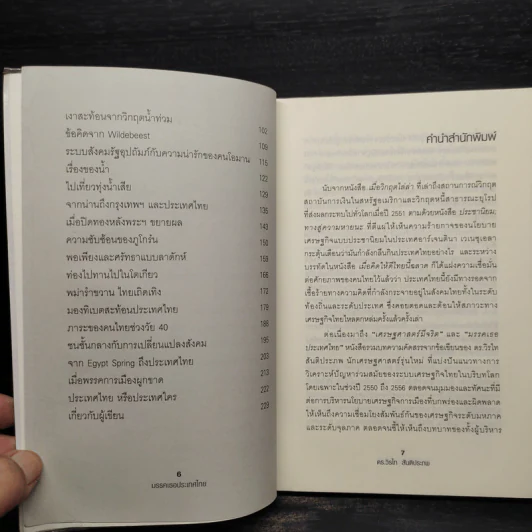 เงาสะท้อนจากวิกฤตน้ำท่วม 102
ข้อคิดจาก Wildebeest 109
ระบบสังคมรัฐอุปถัมภ์กับความน่ารักของคนโอมาน 116
เรื่องของน้ำ 122
ไปเที่ยวทุ่งน้ำเสีย 129
จากน่านถึงกรุงเทพฯ และประเทศไทย 135
เมื่อปิดทองหลังพระฯ ขยายผล 143
ความซับซ้อนของภูโกร๋น 151
พอเพียงและศรัทธาแบบลาดักห์
ท่องไปทานไปในโตเกียว 168
พม่ารำขวาน ไทยเถิดเทิง 172
มองทิเบตสะท้อนประเทศไทย 179
ภาระของคนไทยช่วงวัย 40 186
ชนชั้นกลางกับการเปลี่ยนแปลงสังคม 193
จาก Egypt Spring ถึงประเทศไทย 206
เมื่อพรรคการเมืองผูกขาด 213
ประเทศไทย หรือประเทศใคร 220
เกี่ยวกับผู้เขียน 229
6
มรรคเธอประเทศไทย
คำนำสำนักพิมพ์
นับจากหนังสือ เมื่อวิกฤตไล่ล่า ที่เล่าถึงสถานการณ์วิกฤต
สถาบันการเงินในสหรัฐอเมริกาและวิกฤตหนี้สาธารณะยุโรป
ที่ส่งผลกระทบไปทั่วโลกเมื่อปี 2551 ตามด้วยหนังสือ ประชานิยม:
ทางสู่ความหายนะ ที่ตีแผ่ให้เห็นความร้ายกาจของนโยบาย
เศรษฐกิจแบบประชานิยมในประเทศอาร์เจนตินา เวเนซุเอลา
กระตุ้นเตือนว่ามันกำลังกลืนกินประเทศไทยอย่างไร และระหว่าง
บรรทัดในหนังสือ เมื่อคิดให้ดีโลกนี้ฉลาด ก็ได้แฝงความเชื่อมั่น
ต่อศักยภาพของคนไทยไว้แล้วว่า ประเทศไทยนี้ยังมีทางรอดจาก
เชื้อร้ายทางความคิดที่กำลังกระจายอยู่ในสังคมไทยทั้งในระดับ
ท้องถิ่นและระดับประเทศ ซึ่งคอยตอดและต้อนให้สภาวะทาง
เศรษฐกิจไทยไหลตกหล่มครั้งแล้วครั้งเล่า
ต่อเนื่องมาถึง "เศรษฐศาสตร์มีจริต" และ "มรรคเธอ
ประเทศไทย" หนังสือรวมบทความคัดสรรจากข้อเขียนของ ดร.วิรไท
สันติประภพ นักเศรษฐศาสตร์รุ่นใหม่ ที่แบ่งปันแนวทางการ
วิเคราะห์ปัญหาร่วมสมัยของระบบเศรษฐกิจไทยในบริบทโลก
โดยเฉพาะในช่วงปี 2550 ถึง 2556 ตลอดจนมุมมองและทัศนะที่มี
ต่อการบริหารนโยบายเศรษฐกิจการเมืองที่บกพร่องและผิดพลาด
ให้เห็นถึงความเชื่อมโยงสัมพันธ์กันของเศรษฐกิจระดับมหภาค
และระดับจุลภาค ตลอดจนชี้ให้เห็นถึงบทบาทของทั้งผู้บริหาร
7
ดร.วิรไท สันติประภพ